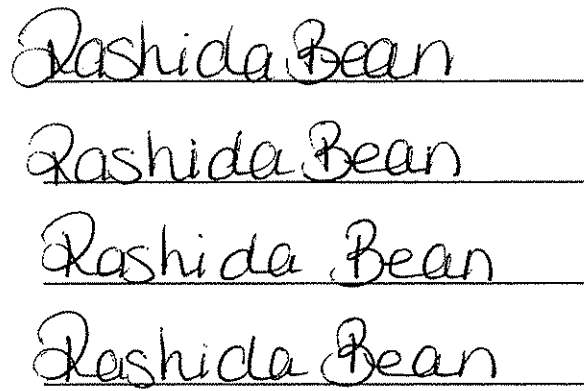 Rashida Bean
Rashida Bean
Rashida Bean
Rashida Bean